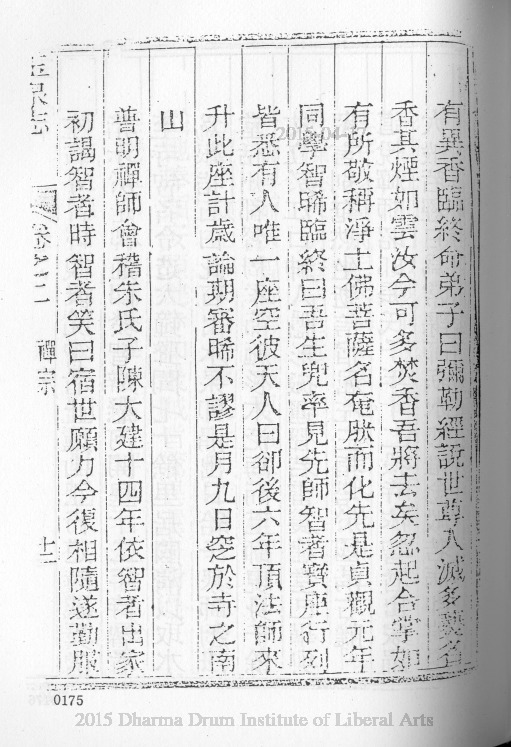 有異香臨終命弟子曰彌勒經說世尊入滅多爇名
香其煙如雲汝今可多焚香吾將去矣忽起合掌如
有所敬稱淨土佛菩薩名奄然而化先是貞觀元年
同學智晞臨終曰吾生兜率見先師智者寶座行列
皆悉有人唯一座空彼天人曰卻後六年頂法師來
升此座計歲論期審晞不謬是月九日窆於寺之南
山
普明禪師會稽朱氏子陳大建十四年依智者出家
初謁智者時智者笑曰宿世願力今復相隨遂勤服
志 卷之二 禪宗 十二
0175
2015 Dharma Drum Institute of Liberal Arts